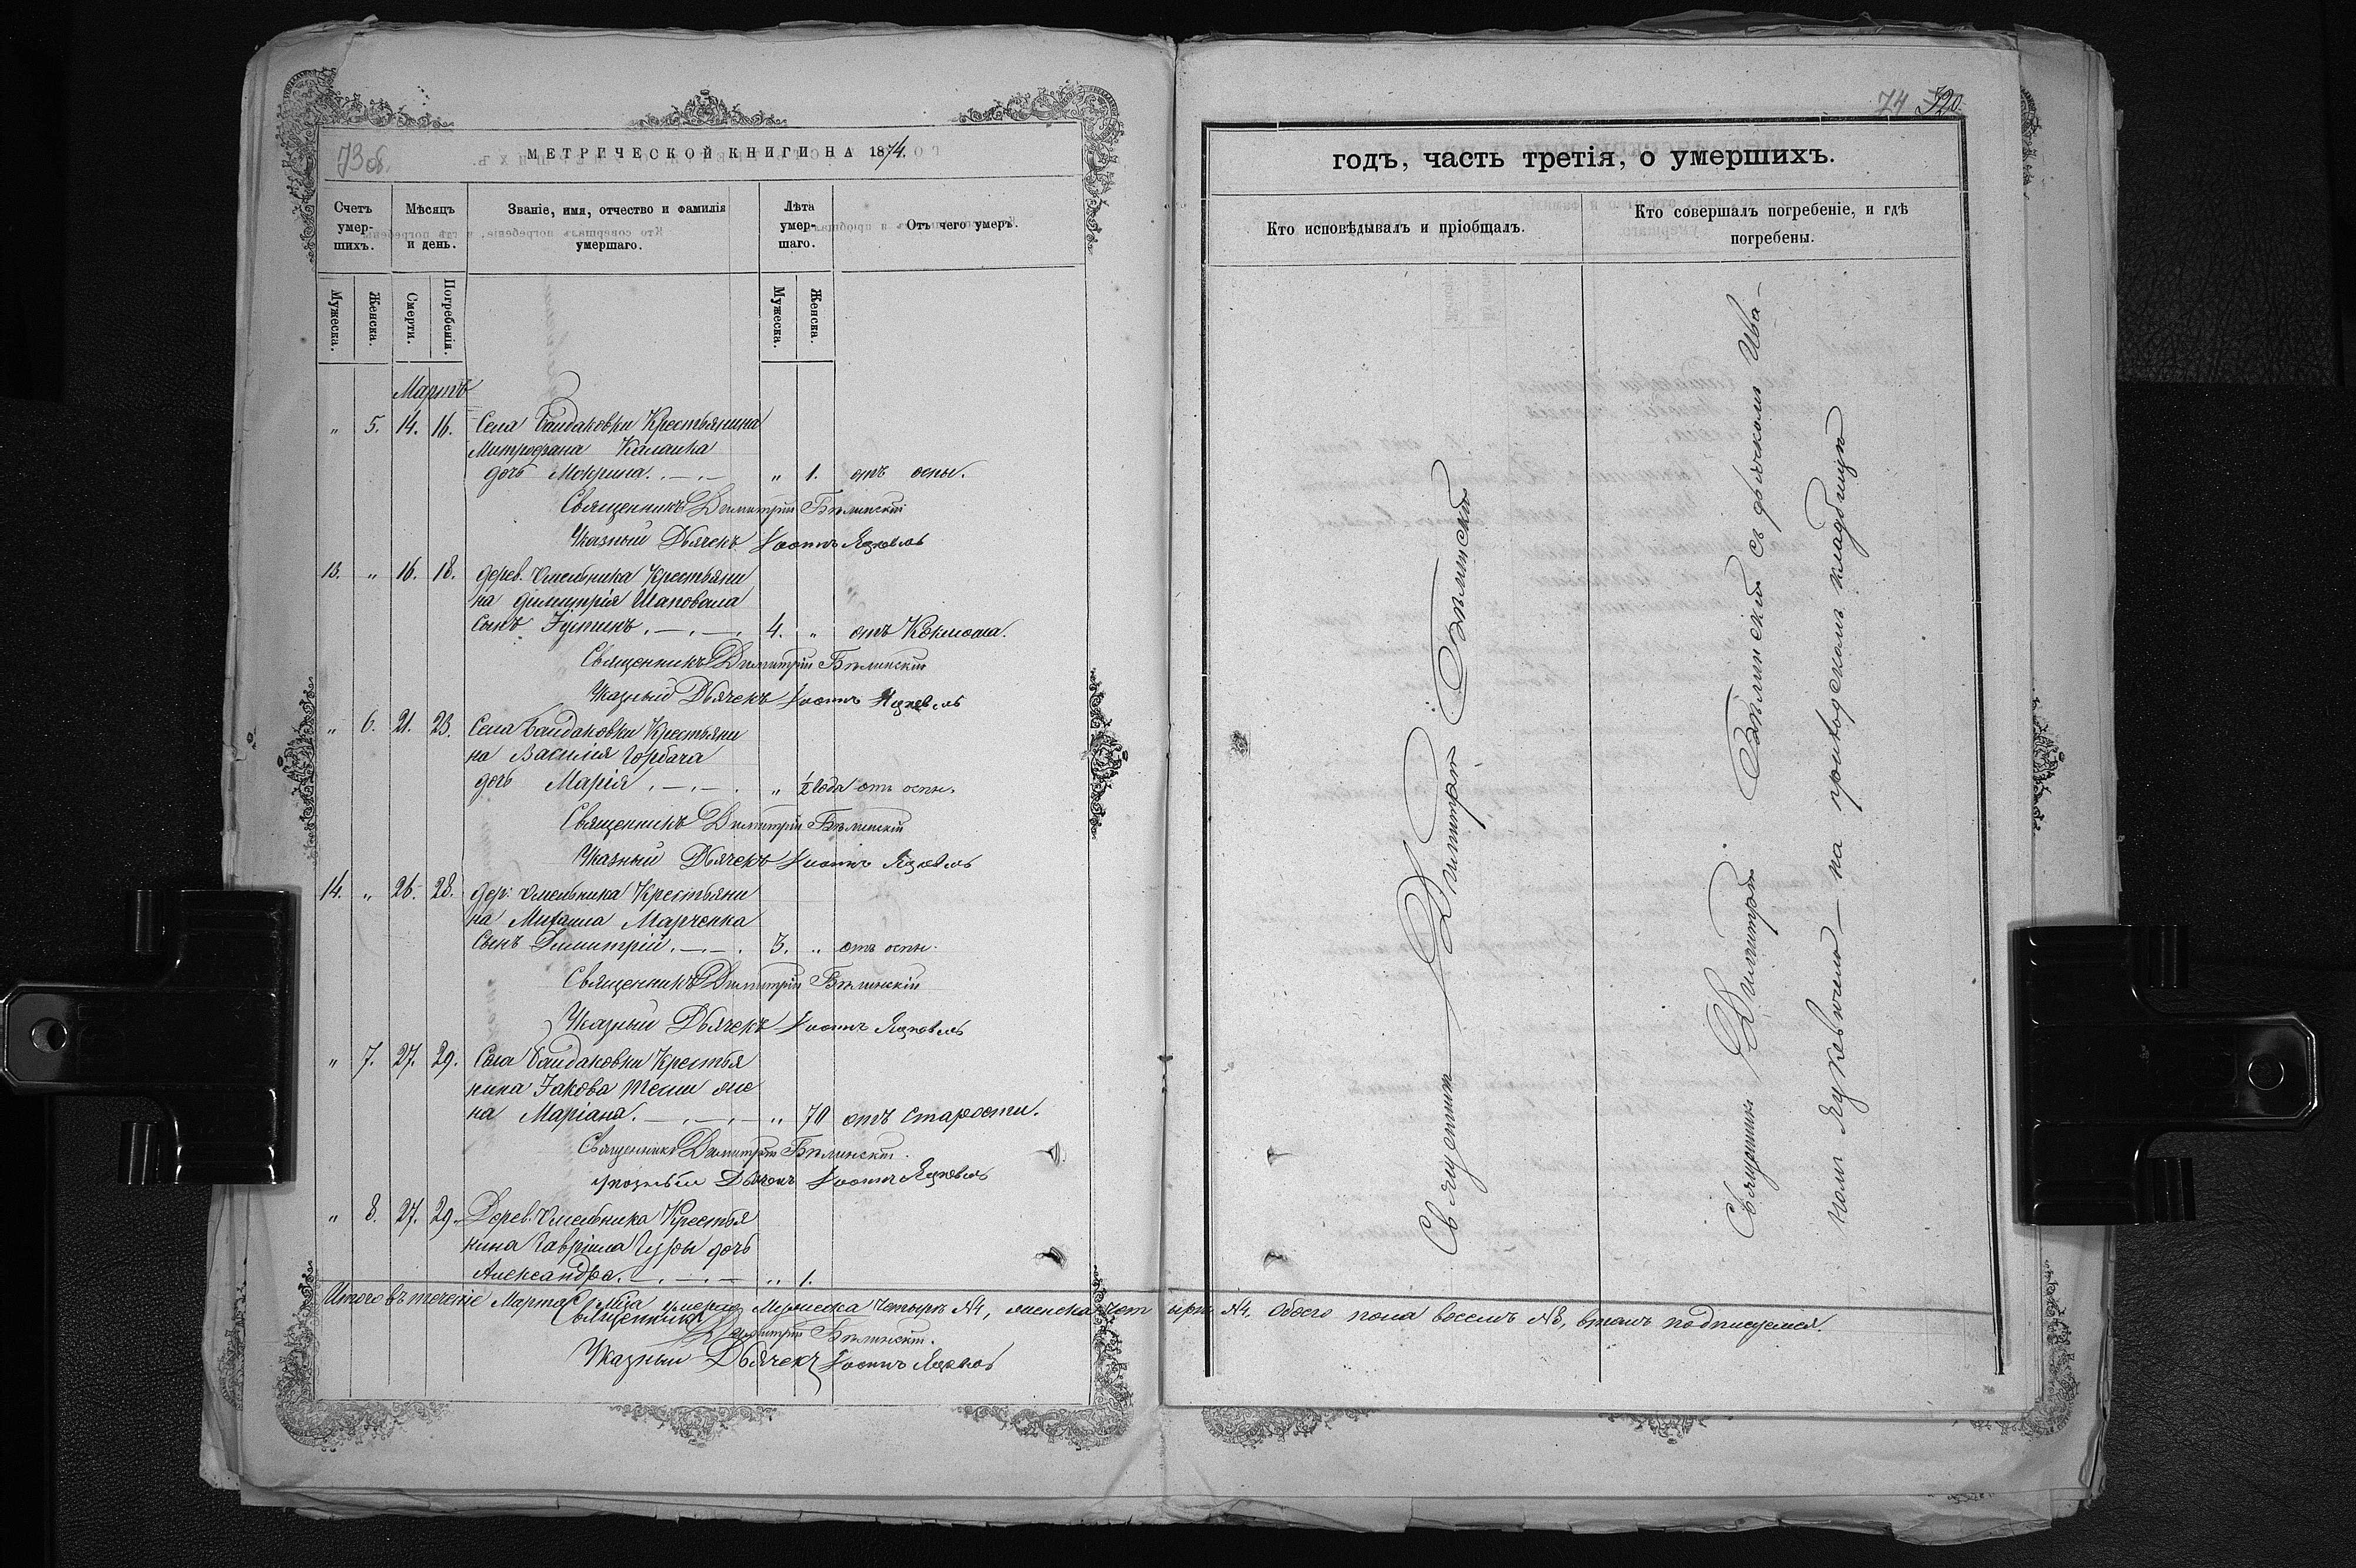 73об.
МЕТРИЧЕСКОЙ КНИГИ НА 1874.
Счетъ умер-шихъ.
Мѣсяцъ и день.
Званіе, имя, отчество и фамилія умершаго.
Лѣта умер-шаго.
Отъ чего умеръ.
Мужеска.
Женска.
Смерти.
Погребенія.
Мужеска.
Женска.
Мартъ
" 5. 14. 16. Села Байдаковки Крестьянина
Митрофана
дочь Мокрина. " 1. отъ оспы.
Священникъ Димитрій Бѣлинскій
Указный Дьячекъ Іоаннъ
13. " 16. 18. дерев. Омельника Крестьяни
на Димитрія Шаповала
сынъ Іустинъ. 4. " отъ Коклюша.
Священникъ Димитрій Бѣлинскій
Указный Дьячекъ Іоаннъ
" 6. 21. 23. Села Байдаковки Крестьяни
на Василія Горбача
дочь Марія " ½ года отъ оспы.
Священникъ Димитрій Бѣлинскій
Указный Дьячекъ Іоаннъ
14. " 26. 28. дер. Омельника Крестьяни
на Михаила Марченка
сынъ Димитрій. 3. " отъ оспы.
Священникъ Димитрій Бѣлинскій
Указный Дьячекъ Іоаннъ
" 7. 27. 29. Села Байдаковки Крестья
нина Іакова жена
на Маріана. " 70 отъ старости.
Священникъ Димитрій Бѣлинскій.
указный Дьячекъ Іоаннъ
" 8. 27. 29. Дерев. Омельника Крестья
нина Гавріила Гуры дочь
Александра. " 1.
Итого въ теченіе Марта м-ца умерло Мужеска четыре №4, женска четыре №4, обоего пола восемь №8, втомъ подписуемся.
Священникъ Димитрій Бѣлинскій.
Указный Дьячекъ Іоаннъ
74 320.
годъ, часть третія, о умершихъ.
Кто исповѣдывалъ и пріобщалъ.
Кто совершалъ погребеніе, и гдѣ погребены.
Священникъ Димитрій Бѣлинскій
Священникъ Димитрій Бѣлинскій съ дьячкомъ Ива-
номъ на приходскомъ кладбищѣ